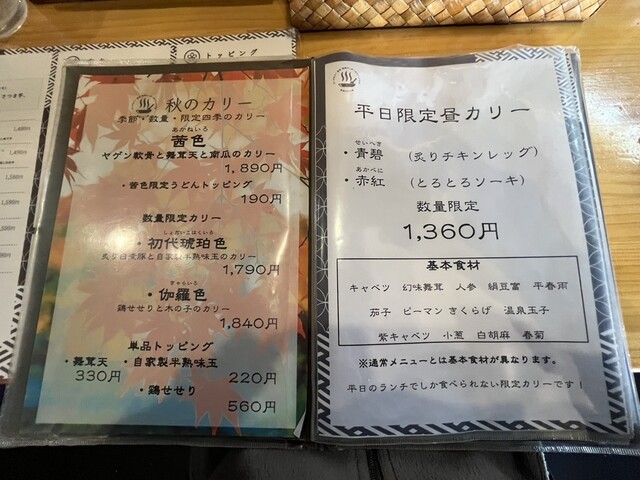 トッピング
秋のカリー
季節・数量・限定四季のカリー
あかねいろ
茜色
ヤゲン軟骨と舞茸天と南瓜のカリー
1,890円
・茜色限定うどんトッピング
190円
数量限定カリー
しょだいこはくいろ
・初代琥珀色
炙り白煮豚と自家製半熟味玉のカリー
1,790円
きゃらいろ
・伽羅色
鶏せせりと木の子のカリー
1,840円
単品トッピング
・舞茸天 ・自家製半熟味玉
330円 220円
・鶏せせり
560円
平日限定昼カリー
せいへき
・青碧 (炙りチキンレッグ)
あかべに
・赤紅 (とろとろソーキ)
数量限定
1,360円
基本食材
キャベツ 幻味舞茸 人参 絹豆富 平春雨
茄子 ピーマン きくらげ 温泉玉子
紫キャベツ 小葱 白胡麻 春菊
※通常メニューとは基本食材が異なります。
平日のランチでしか食べられない限定カリーです！